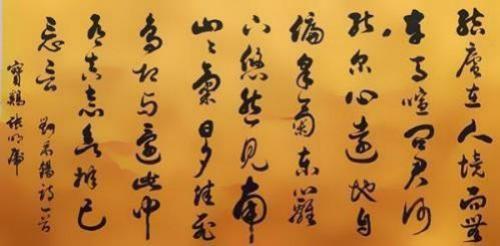 結廬在人境而無
車馬喧問君何
能爾心遠地自
偏采菊東籬
下悠然見南
山々氣日夕佳飛
鳥相與還此中
有真意欲辨已
忘言 劉禹錫詩一首
寶鷄 張明